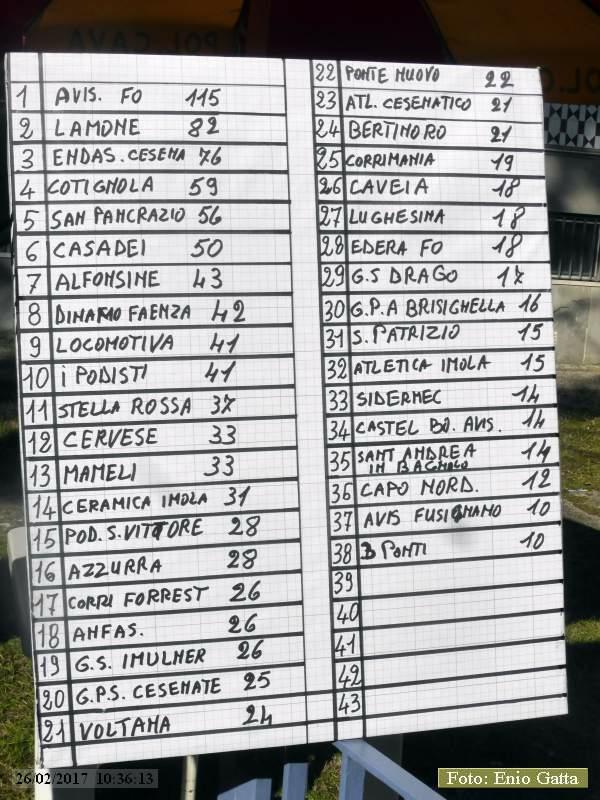 POL CAVA
1 AVIS. FO 115
2 LAMONE 82
3 ENDAS. CESENA 76
4 COTIGNOLA 59
5 SAN PANCRAZIO 56
6 CASADEI 50
7 ALFONSINE 43
8 DINAMO FAENZA 42
9 LOCOMOTIVA 41
10 i PODISTI 41
11 STELLA ROSSA 37
12 CERVESE 33
13 MAMELI 33
14 CERAMICA IMOLA 31
15 POD. S. VITTORE 28
16 AZZURRA 28
17 CORRI FORREST 26
18 ANFAS. 26
19 G.S. IMULNER 26
20 G.P.S. CESENATE 25
21 VOLTANA 24
22 PONTE NUOVO 22
23 ATL. CESENATICO 21
24 BERTINORO 21
25 CORRIMANIA 19
26 CAVEIA 18
27 LUGHESINA 18
28 EDERA FO 18
29 G.S DRAGO 17
30 G.P.A BRISIGHELLA 16
31 S. PATRIZIO 15
32 ATLETICA IMOLA 15
33 SIDERMEC 14
34 CASTEL BO. AVIS. 14
35 SANT ANDREA
IN BAGNOLO 14
36 CAPO NORD. 12
37 AVIS FUSIGNANO 10
38 3 PONTI 10
39
40
41
42
43
26/02/2017 10:36:13
Foto: Enio Gatta